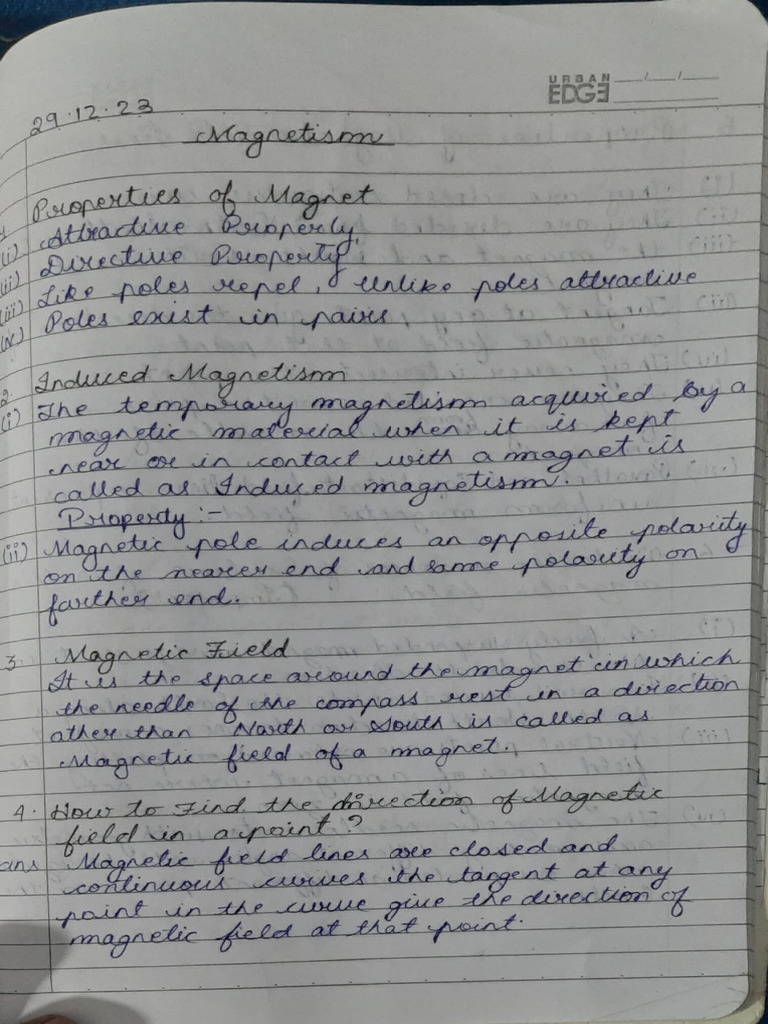 URBAN EDGE
29.12.23
Magnetism
Properties of Magnet
(i) Attractive Property
(ii) Directive Property
(iii) Like poles repel, Unlike poles attractive
Poles exist in pairs
2. Induced Magnetism
(i) The temporary magnetism acquried by a
magnetic material when it is kept
near or in contact with a magnet is
called as Induced magnetism.
Property :-
(ii) Magnetic pole induces an opposite polarity
on the nearer end and same polarity on
farther end.
3. Magnetic Field
It is the space around the magnet in which
the needle of the compass rest in a direction
other than North or South is called as
Magnetic field of a magnet.
4. How to Find the direction of Magnetic
field in a point?
ans Magnetic field lines are closed and
continuous curves the tangent at any
point in the curve give the direction of
magnetic field at that point.